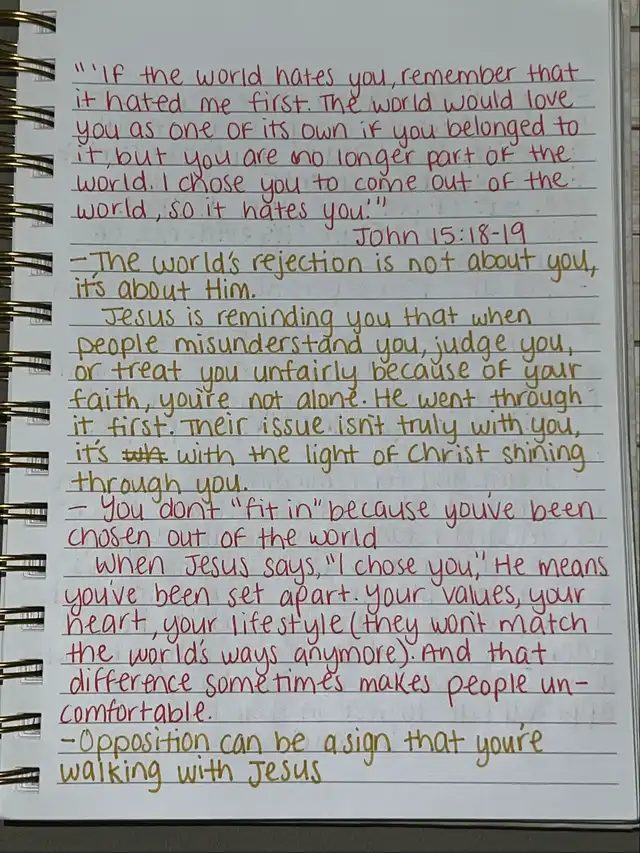 "'If the world hates you, remember that
it hated me first. The world would love
you as one of its own if you belonged to
it, but you are no longer part of the
world. I chose you to come out of the
world, so it hates you.'"
John 15:18-19
- The world's rejection is not about you,
it's about Him.
Jesus is reminding you that when
people misunderstand you, judge you,
or treat you unfairly because of your
faith, you're not alone. He went through
it first. Their issue isn't truly with you,
it's with the light of Christ shining
through you.
- You don't "fit in" because you've been
chosen out of the world
When Jesus says, "I chose you," He means
you've been set apart. Your values, your
heart, your lifestyle (they won't match
the world's ways anymore). And that
difference sometimes makes people un-
comfortable.
- Opposition can be a sign that you're
walking with Jesus